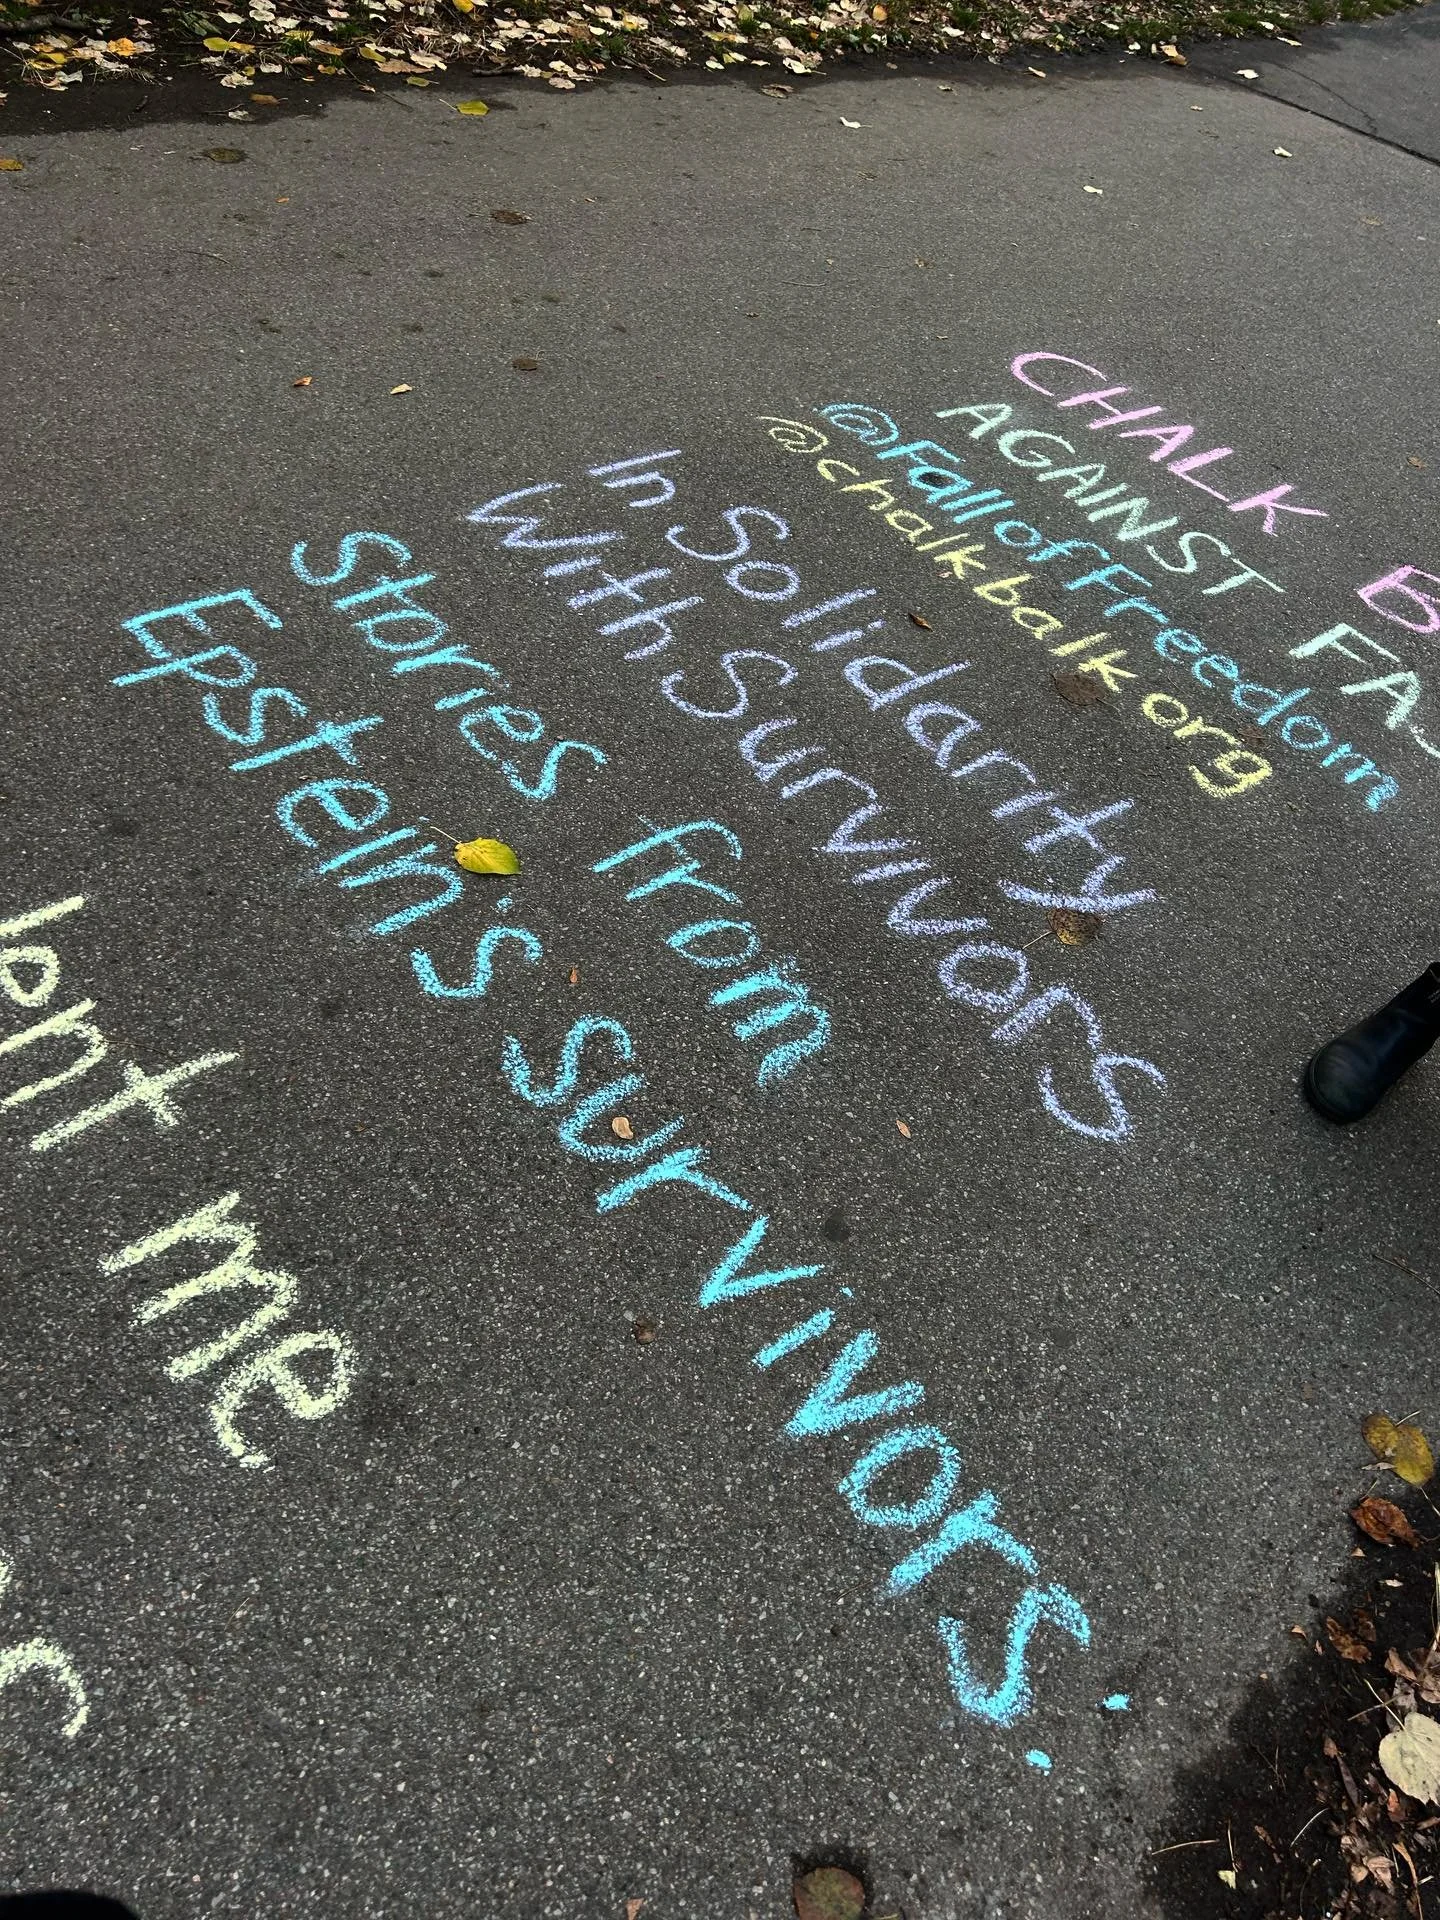 CHALK B
AGAINST FA
@FallofFreedom
@chalkbalk.org
In Solidarity
With Survivors
Stories from
Epstein's survivors:
me